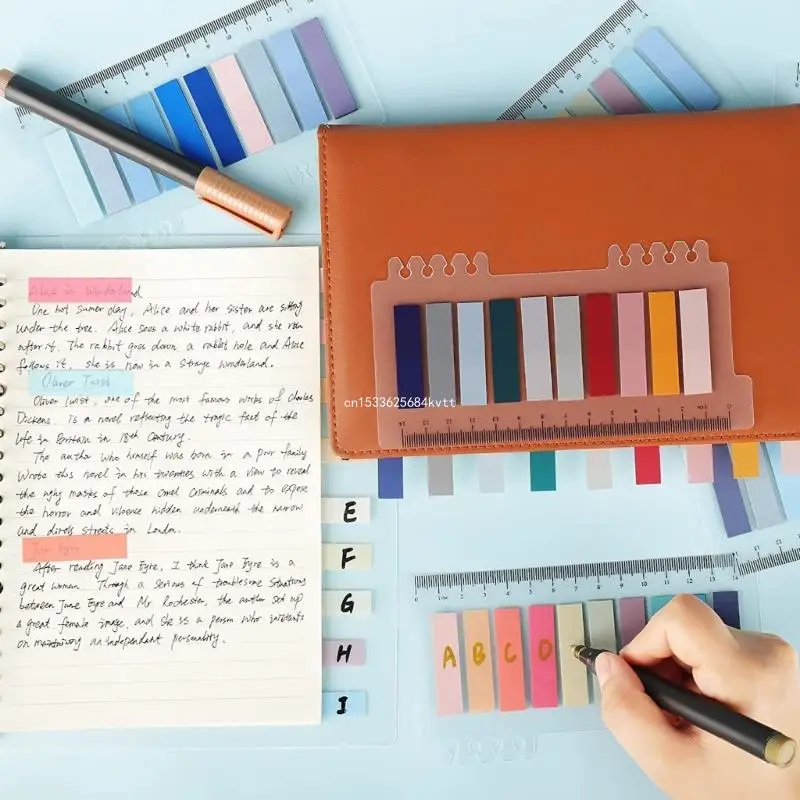 Alice in Wonderland
One hot sumer day, Alice and her sister are sitting
under the tree. Alice sees a white rabbit, and she ran
after it. The rabbit goes down a rabbit hole and Alice
follows it, she is now in a strange wonderland.
Oliver Twist
Oliver Twist, one of the most famous works of Charles
Dickens. Is a novel reflecting the tragic fact of the
life in Britain in 18th Century.
The author who himself was born in a poor family
Wrote this novel in his twenties with a view to reveal
the ugly masks of these cruel criminals and to expose
the horror and violence hidden underneath the narrow
and dirty streets in London.
Jane Eyre
After reading Jane Eyre, I think Jane Eyre is a
great woman. Through a serious of troublesome situations
between Jane Eyre and Mr Rochester, the author set up
a great female image, and she is a person who insistants
on maintaining an independant personality.
E
F
G
H
I
cn1533625684kvtt
A B C D